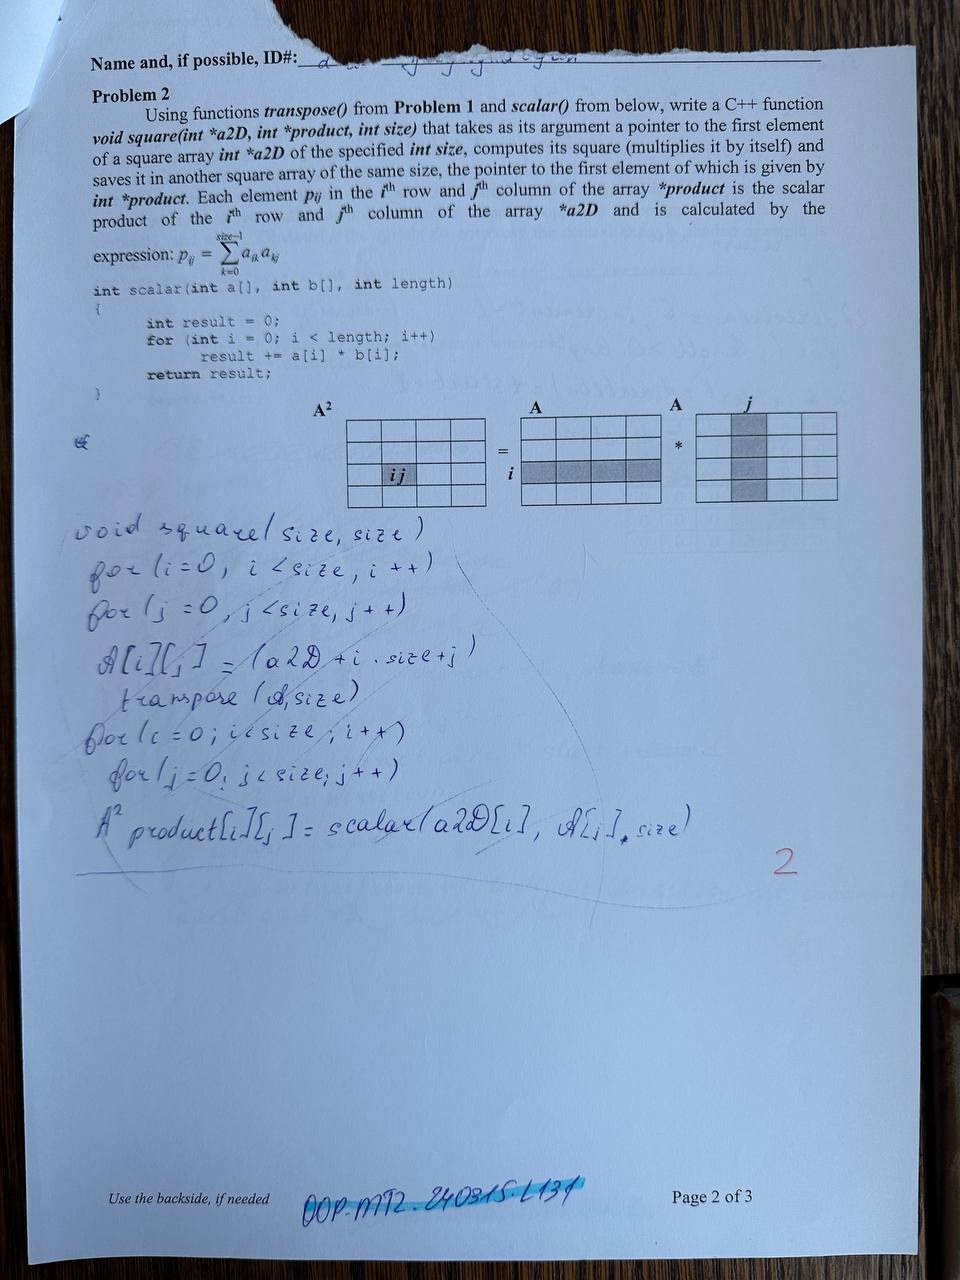 Name and, if possible, ID#:
Problem 2
Using functions transpose() from Problem 1 and scalar() from below, write a C++ function
void square(int *a2D, int *product, int size) that takes as its argument a pointer to the first element
of a square array int *a2D of the specified int size, computes its square (multiplies it by itself) and
saves it in another square array of the same size, the pointer to the first element of which is given by
int *product. Each element pij in the ith row and jth column of the array *product is the scalar
product of the ith row and jth column of the array *a2D and is calculated by the
expression: pij = size–1 ∑ k=0 aik akj
int scalar(int a[], int b[], int length)
{
int result = 0;
for (int i = 0; i < length; i++)
result += a[i] * b[i];
return result;
}
A² A A j
ij = i *
void square(size, size)
for (i=0, i<size, i++)
for (j=0, j<size, j++)
A[i][j] = (a2D+i·size+j)
transpose (A,size)
for (i=0; i<size; i++)
for (j=0; j<size; j++)
A² product[i][j] = scalar(a2D[i], A[j], size)
2
Use the backside, if needed
OOP.MT2.240315.L131
Page 2 of 3